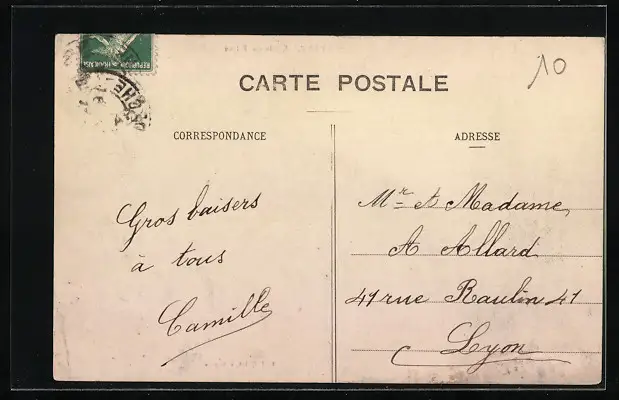 REPUBLIQUE FRANÇAISE
10
CARTE POSTALE
CORRESPONDANCE
ADRESSE
Gros baisers
à tous
Camille
Mr et Madame
A Allard
41 rue Raulin 41
Lyon